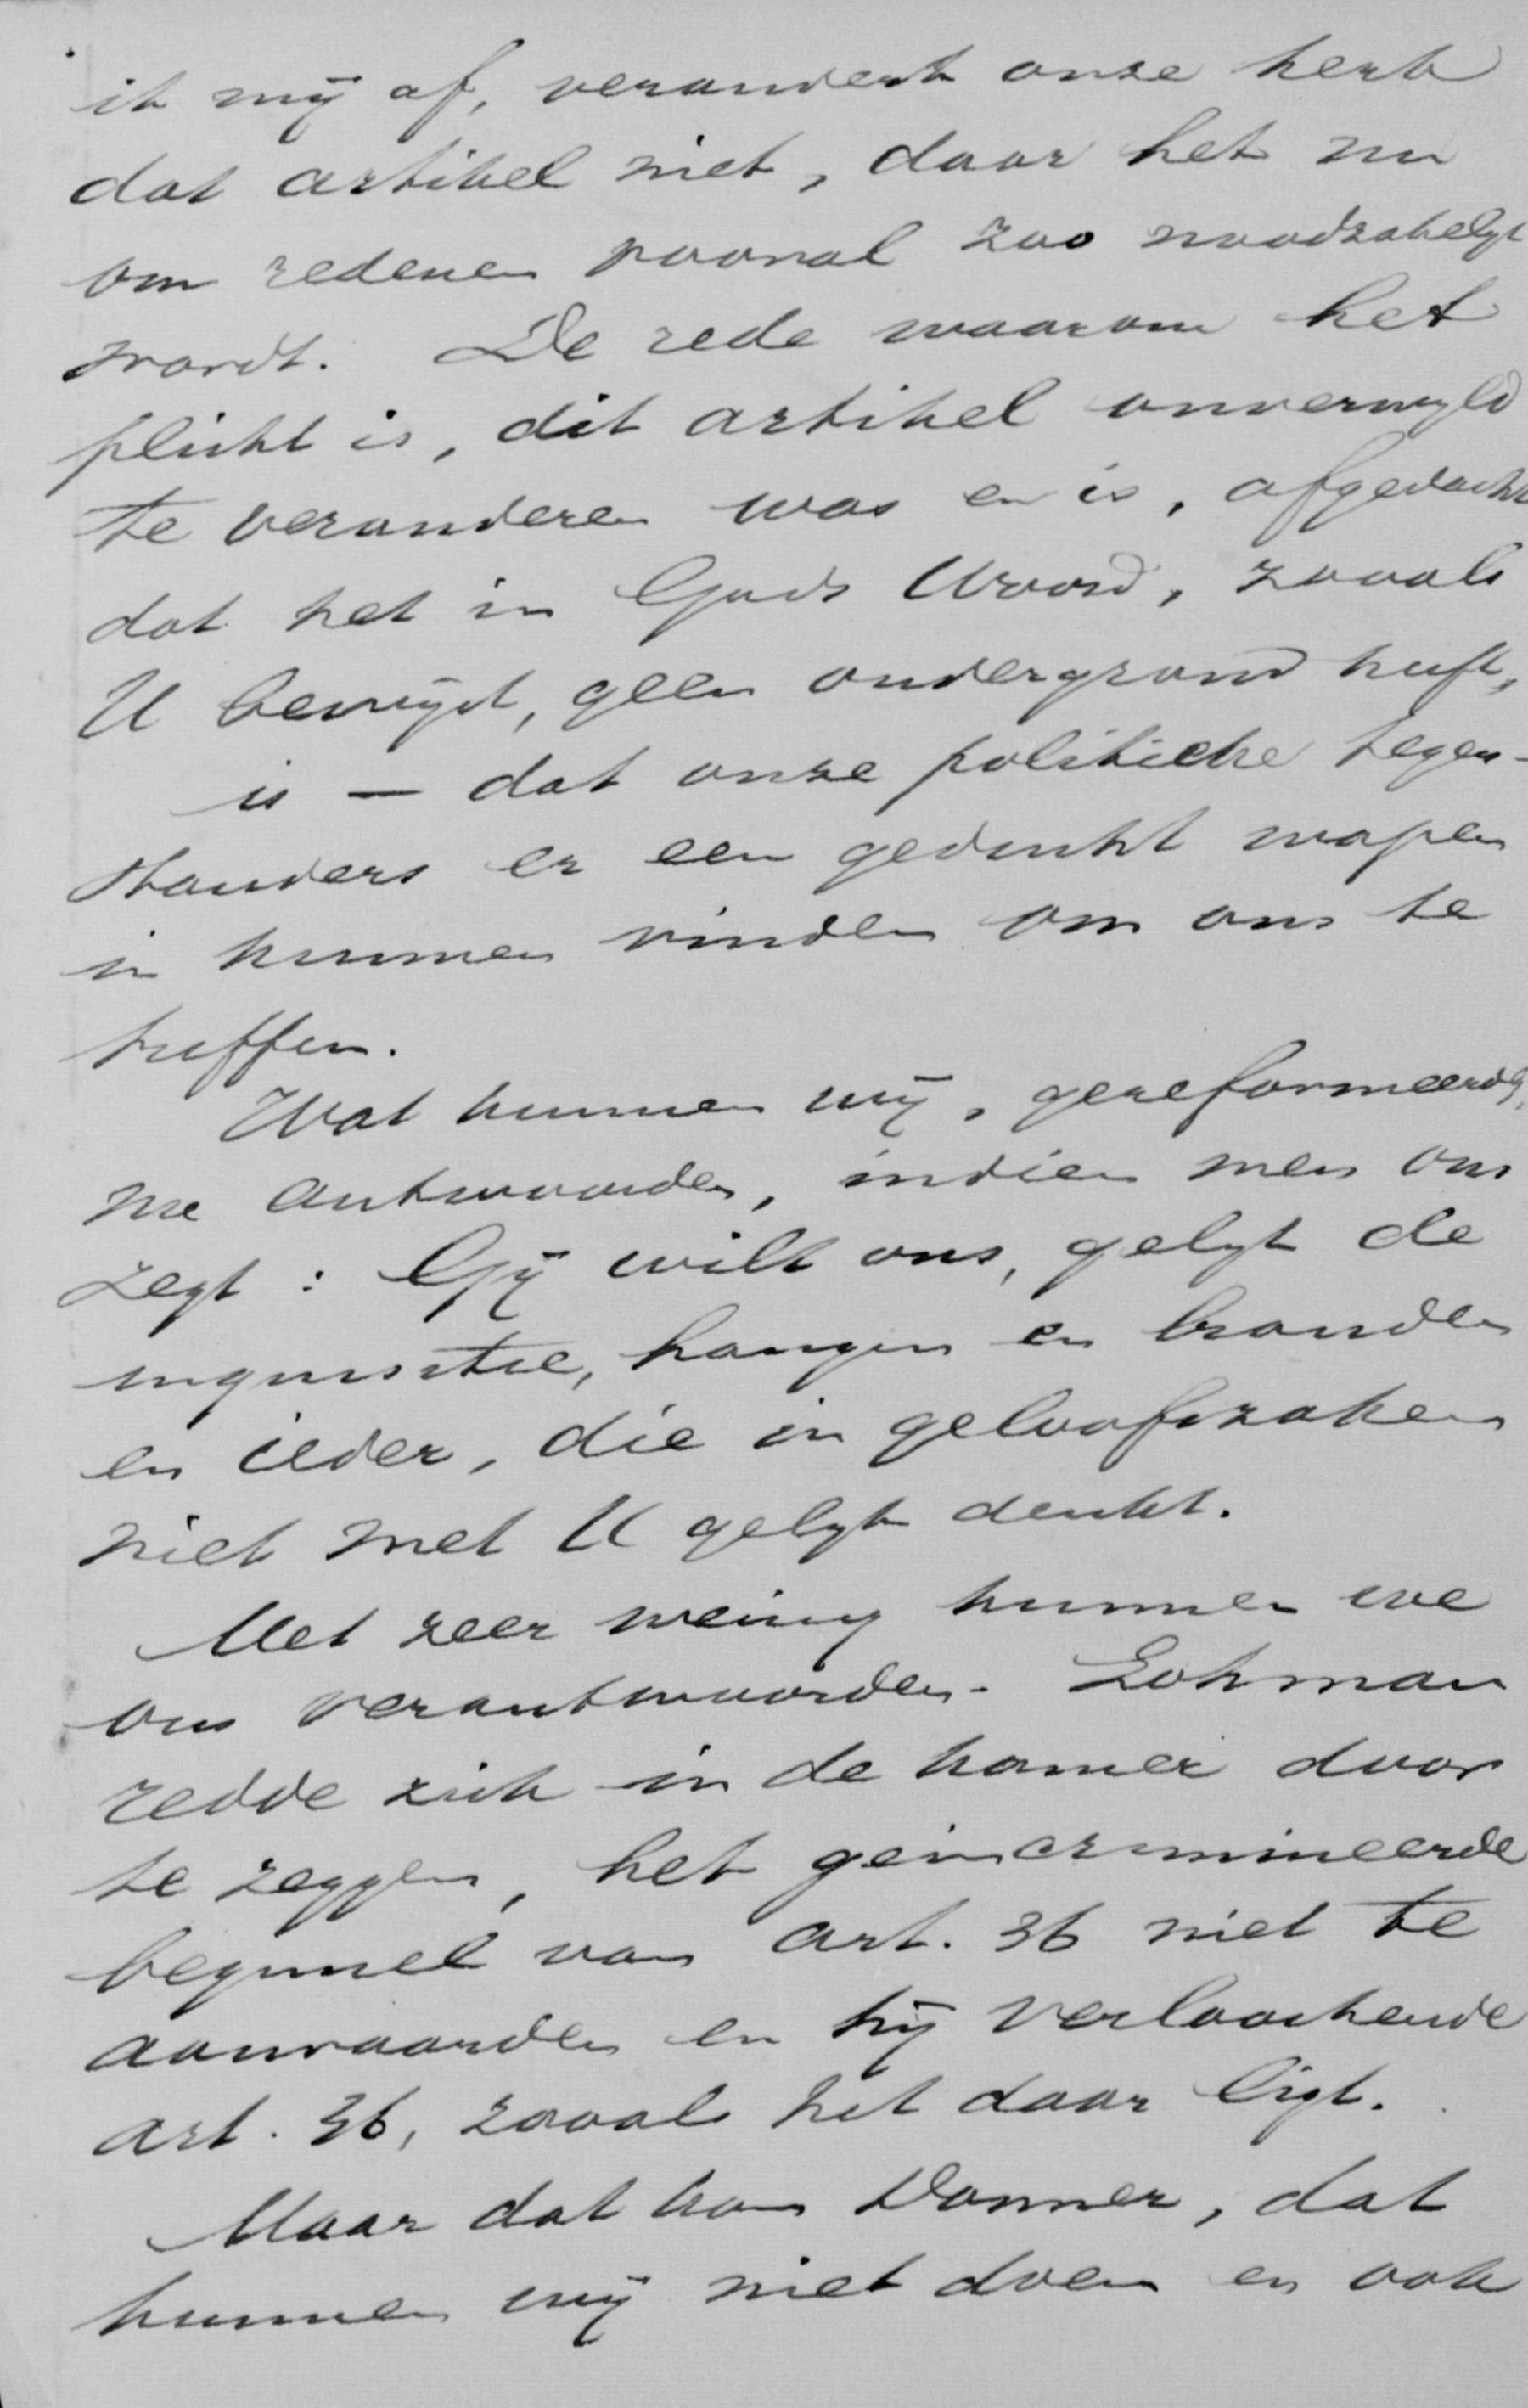 ik mij af, verandert onze kerk
dat artikel niet, daar het nu
om redenen vooral zoo noodzakelyk
wordt. De rede waarom het
plicht is, dit artikel onverwyld
te veranderen was en is, afgedacht
dat het in Gods Woord, zooals
U bewijst, geen ondergrond heeft,
is — dat onze politieke tegen-
standers er een geducht wapen
in kunnen vinden om ons te
treffen.
Wat kunnen wij, gereformeerdn,
nu antwoorden, indien men ons
zegt: Gij wilt ons, gelyk de
inquisitie, hangen en branden
en ieder, die in geloofszaken
niet met U gelyk denkt.
Met zeer weinig kunnen we
ons verantwoorden. Lohman
redde zich in de kamer door
te zeggen, het geincrimineerde
beginsel van art. 36 niet te
aanvaarden en hij verloochende
art. 36, zooals het daar ligt.
Maar dat kan Donner, dat
kunnen wij niet doen en ook